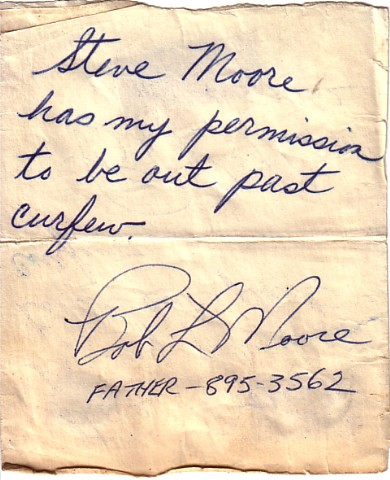 Steve Moore
has my permission
to be out past
curfew.
Bob L Moore
FATHER - 895-3562